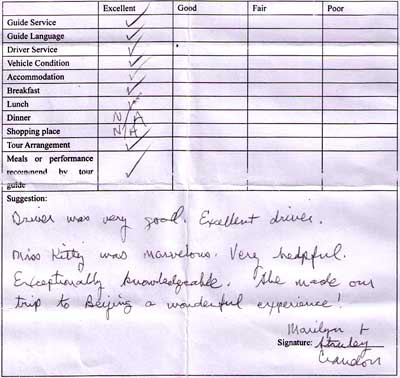 Excellent Good Fair Poor
Guide Service ✓
Guide Language ✓
Driver Service ✓
Vehicle Condition ✓
Accommodation ✓
Breakfast ✓
Lunch ✓
Dinner N/A
Shopping place N/A
Tour Arrangement ✓
Meals or performance
recommend by tour ✓
guide
Suggestion:
Driver was very good. Excellent driver.
Miss Kitty was marvelous. Very helpful.
Exceptionally knowledgeable. She made our
trip to Beijing a wonderful experience!
Marilyn +
Signature: Stanley